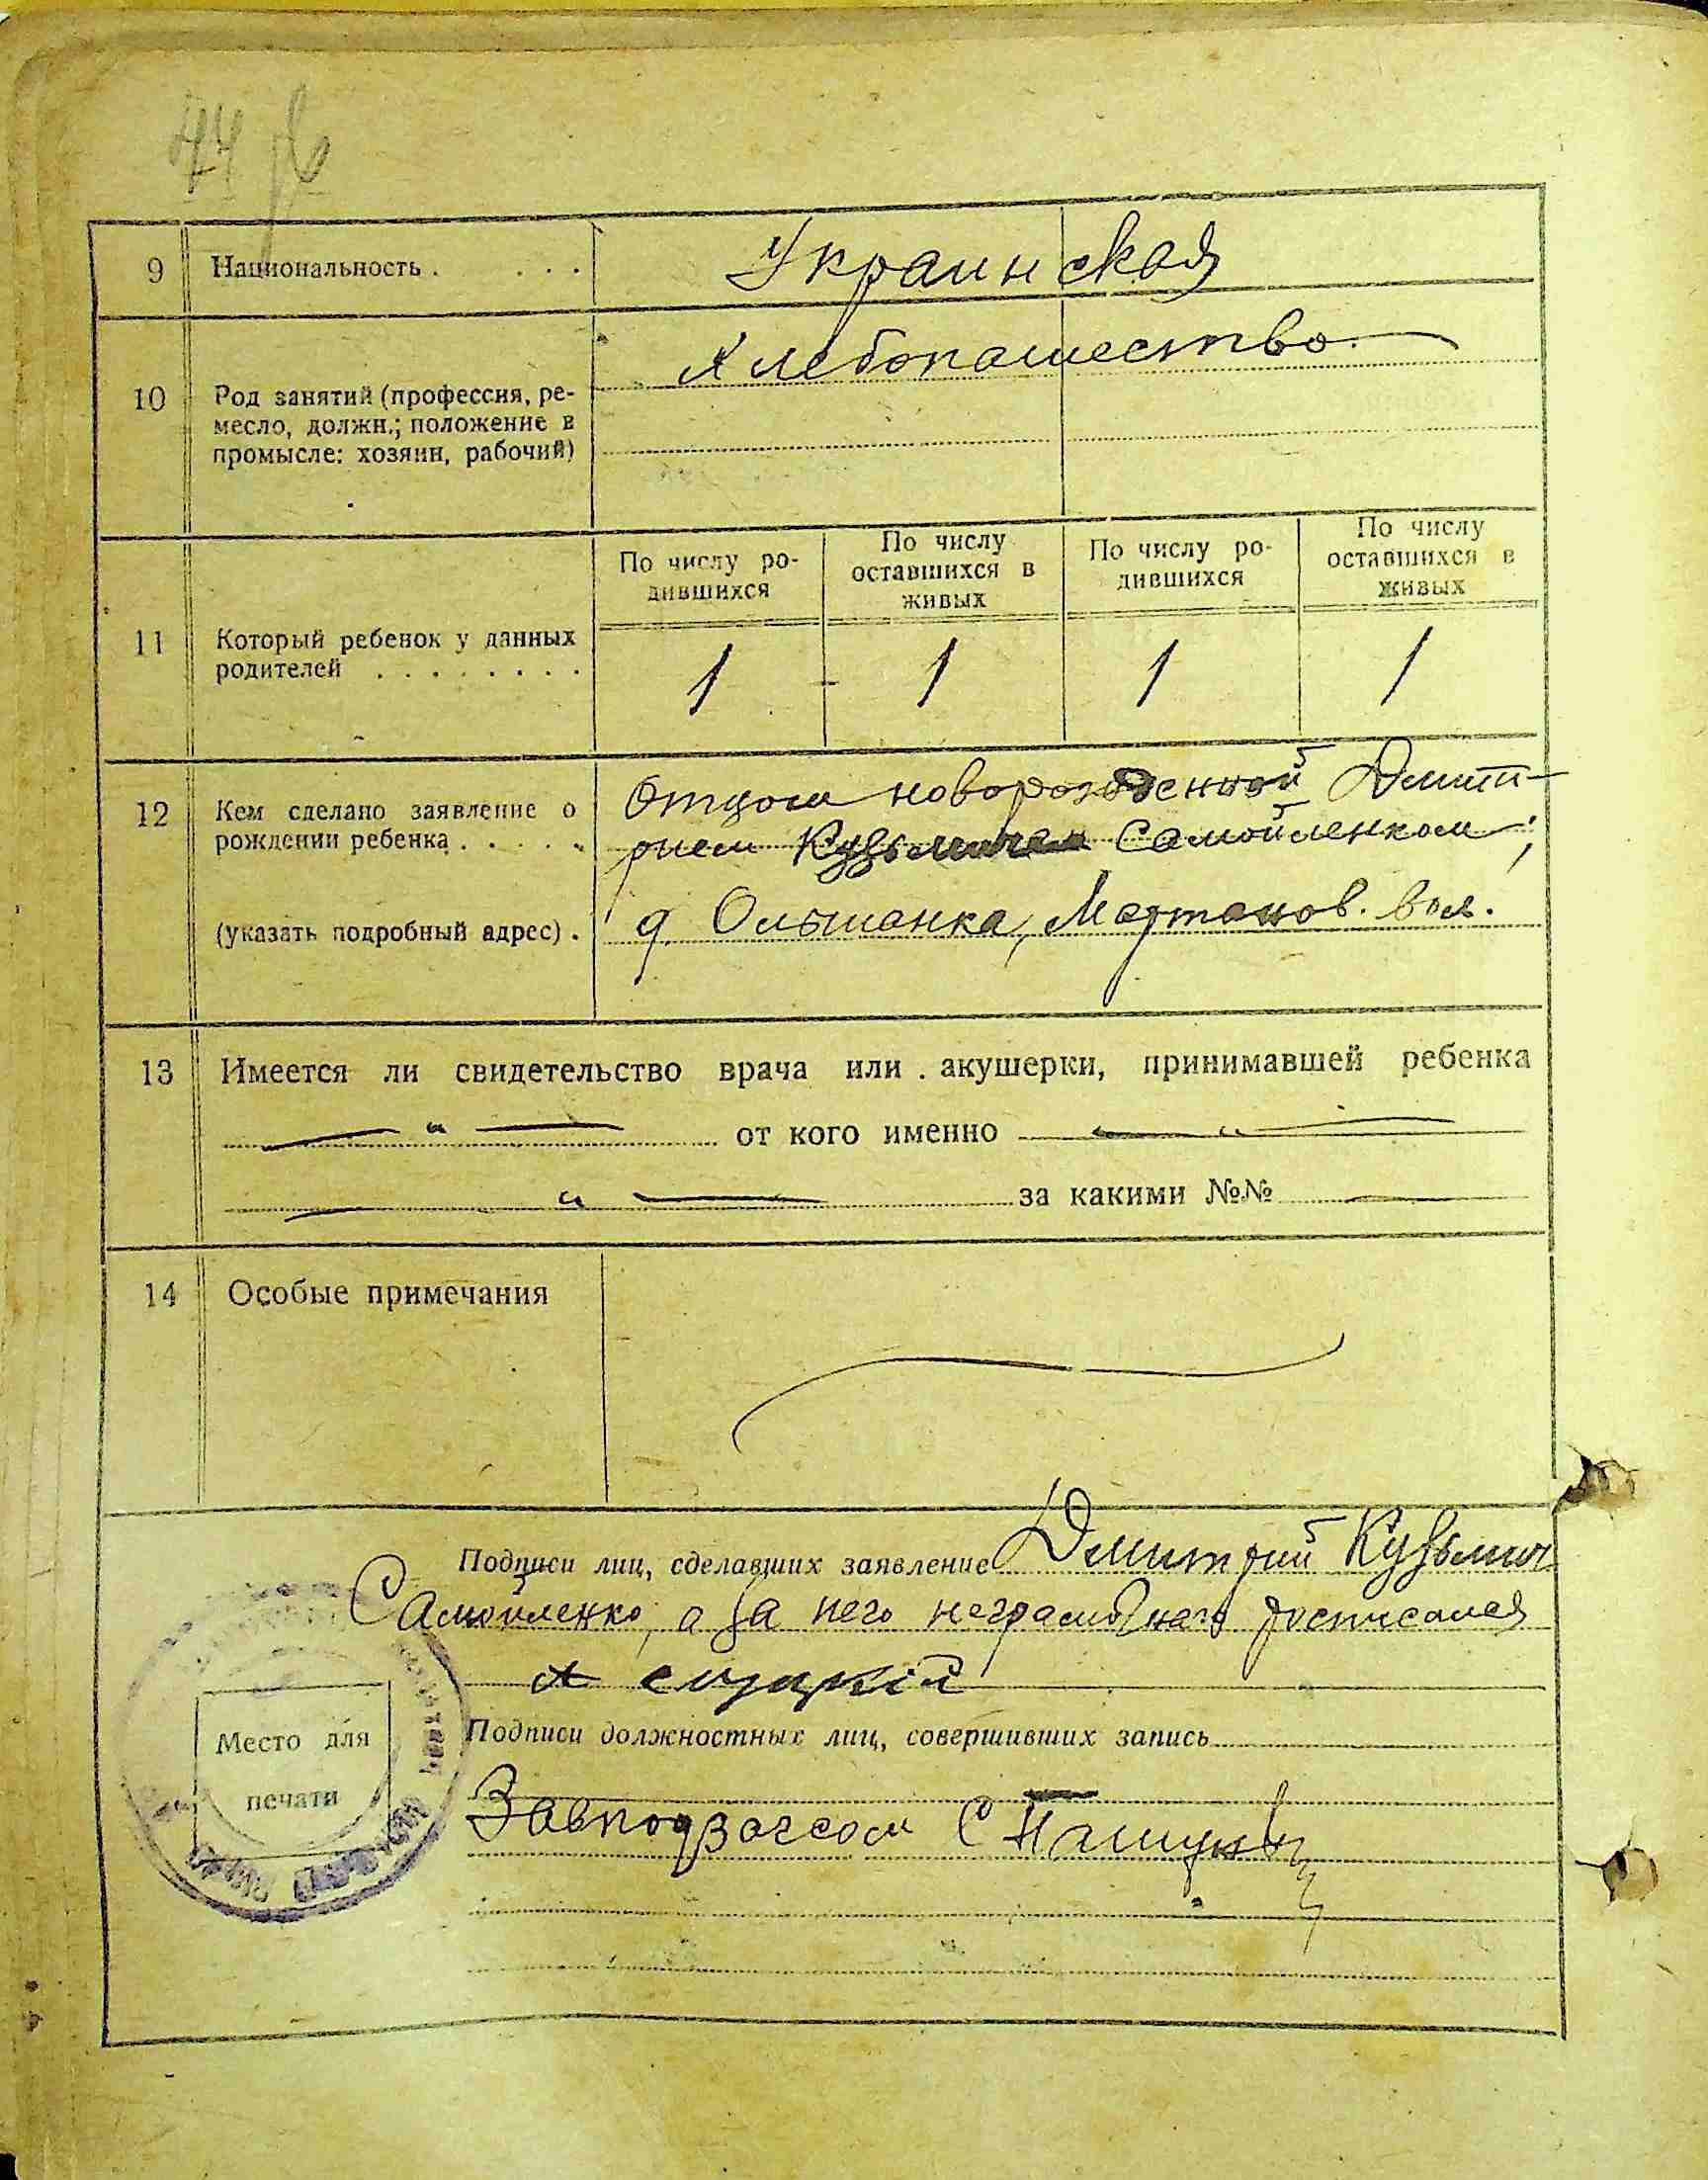 44 об
9 Национальность . . . . Украинская
10 Род занятий (профессия, ре-
месло, должн.; положение в
промысле: хозяин, рабочий)
Хлебопашество.
11 Который ребенок у данных
родителей . . . . . . . .
По числу ро-
дившихся
По числу
оставшихся в
живых
По числу ро-
дившихся
По числу
оставшихся в
живых
1 1 1 1
12 Кем сделано заявление о
рождении ребенка . . . . .
(указать подробный адрес) .
Отцом новорожденной Дмит-
рием Кузьмичем Самойленком;
д. Ольшанка, вол.
13 Имеется ли свидетельство врача или акушерки, принимавшей ребенка
— " — от кого именно — " —
— " — за какими №№ —
14 Особые примечания
Подписи лиц, сделавших заявление Дмитрий Кузьмич
Самойленко, а за него неграмотного росписался
Подписи должностных лиц, совершивших запись
Место для
печати
Завподзагсом С